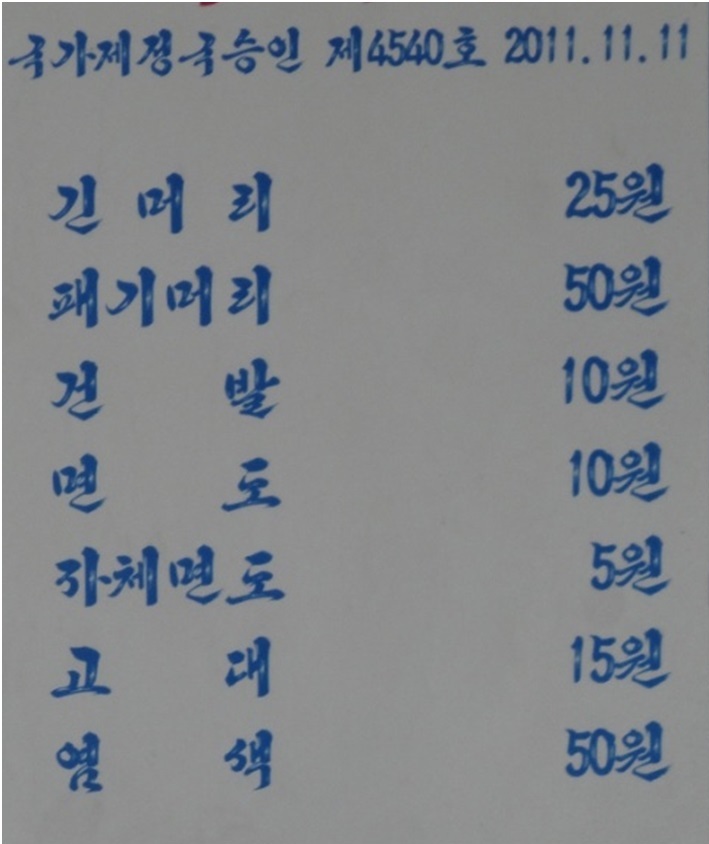 국가제정국승인 제4540호 2011.11.11
긴머리 25원
패기머리 50원
건발 10원
면도 10원
자체면도 5원
고대 15원
염색 50원